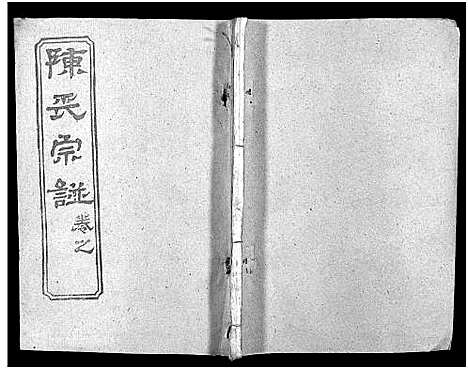 陳氏宗譜
卷之